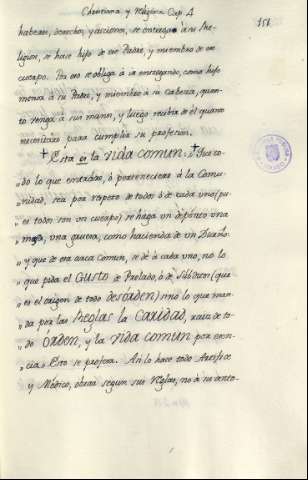 Christiana y religiosa Cap. 4
151
haberes, derechos, y acciones, se entrega à su Re-
ligion, se hace hijo de ese Padre, y miembro de ese
cuerpo. Por eso se obliga à ir entregando, como hijo
menor à su Padre, y miembro à su cabeza, quan-
to venga à sus manos, y luego reciba de èl quanto
necesitare para cumplir su profesion.
† Esta es la vida comun. † Que to-
„ do lo que entrare, ò perteneciere à la Comu-
„ nidad, sea por respeto de todos ò de cada uno (pu-
„ es todos son un cuerpo) se haga un depósito, una
„ masa, una gavera, como hacienda de un Dueño:
„ y que de esa arca comun, se dè à cada uno, no lo
„ que pida el Gusto de Prelado, ò de Subdito (que
„ es el origen de todo desórden) sino lo que man-
„ da por las Reglas la Caridad, raiz de to-
„ do Órden, y la vida comun por esen-
„ cia. Esto se profesa. Asi lo hace todo Artifice
„ y Médico, obrar segun sus reglas, no à su anto-